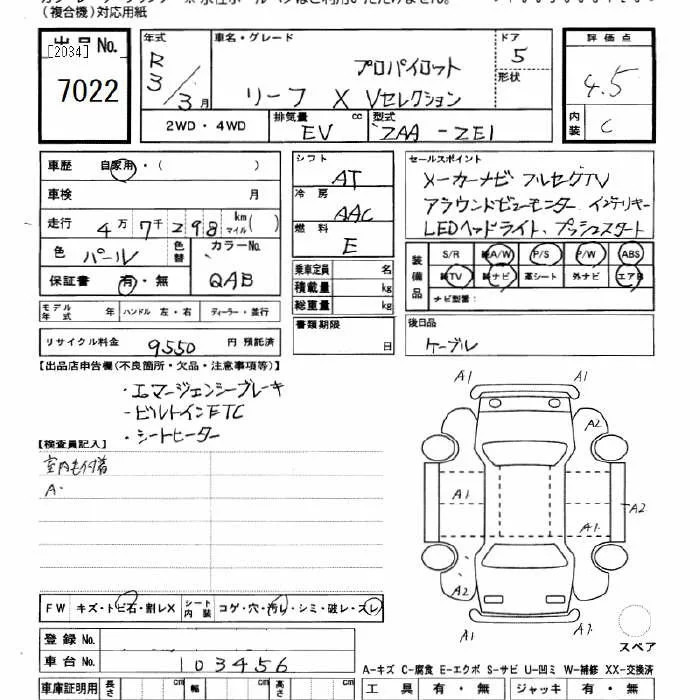 (複合機)対応用紙
出品 No.
[2034]
7022
年式
R3/3月
車名・グレード
プロパイロット
リーフ X Vセレクション
ドア
5
形状
評価点
4.5
内装
C
2WD・4WD
排気量 EV cc
型式 ZAA-ZE1
車歴 自家用・( )
車検 月
走行 4万7千298 km マイル( )
色 パール
色替
カラーNo.
QAB
保証書 有・無
モデル年式 年 ハンドル 左・右 ディーラー・並行
リサイクル料金 9550 円 預託済
シフト
AT
冷房
AAC
燃料
E
乗車定員 名
積載量 kg
総重量 kg
書類期限
日
セールスポイント
メーカーナビ フルセグTV
アラウンドビューモニター インテリキー
LEDヘッドライト、プッシュスタート
装備品
S/R 純A/W P/S P/W ABS
純TV 純ナビ 革シート 外ナビ エアB
ナビ型番:
後日品
ケーブル
【出品店申告欄(不良箇所・欠品・注意事項等)】
・エマージェンシーブレーキ
・ビルトインETC
・シートヒーター
【検査員記入】
A・
A1
A1
A2
A1
A2
A1
A2
A1
スペア
FW キズ・トビ石・割レX シート内装 コゲ・穴・汚レ・シミ・破レ・スレ
登録 No.
車台 No.
103456
A-キズ C-腐食 E-エクボ S-サビ U-凹ミ W-補修 XX-交換済
車庫証明用 長さ cm 幅 cm 高さ cm
工具 有・無 ジャッキ 有・無